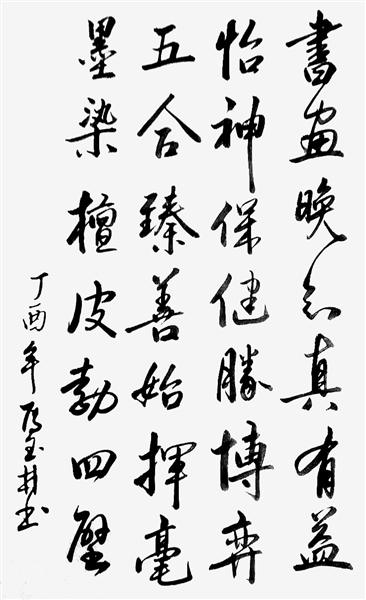 書畫晚知真有益
怡神保健勝博弈
五合臻善始揮毫
墨染檀皮勃四壁
丁酉年玉井书